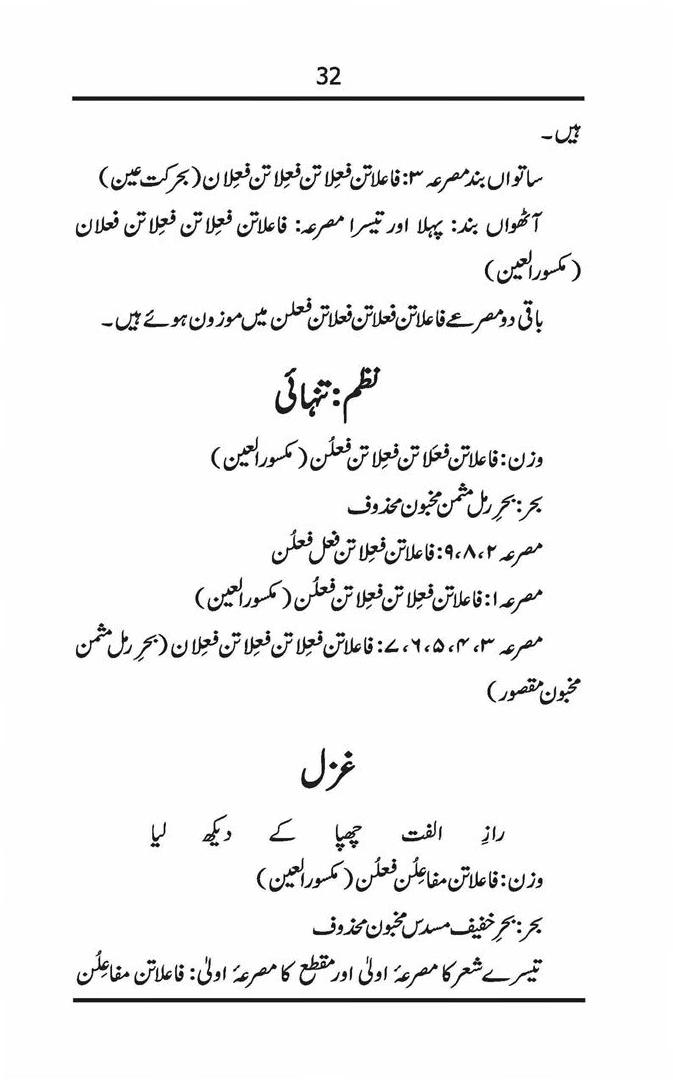 32
ہیں۔
ساتواں بند مصرعہ ۳: فاعلاتن فعِلاتن فعِلاتن فعِلان (بحرکت عین)
آٹھواں بند: پہلا اور تیسرا مصرعہ: فاعلاتن فعِلاتن فعِلاتن فعلان
(مکسور العین)
باقی دو مصرعے فاعلاتن فعلاتن فعلاتن فعلن میں موزون ہوئے ہیں۔
نظم: تنہائی
وزن: فاعلاتن فعَلاتن فعِلاتن فعلُن (مکسور العین)
بحر: بحرِ رمل مثمن مخبون محذوف
مصرعہ ۹،۸،۲: فاعلاتن فعِلاتن فعل فعلُن
مصرعہ ۱: فاعلاتن فعِلاتن فعِلاتن فعلُن (مکسور العین)
مصرعہ ۳، ۴، ۵، ۶، ۷: فاعلاتن فعِلاتن فعِلاتن فعِلان (بحرِ رمل مثمن
مخبون مقصور)
غزل
رازِ الفت چھپا کے دیکھ لیا
وزن: فاعلاتن مفاعِلُن فعلُن (مکسور العین)
بحر: بحرِ خفیف مسدس مخبون محذوف
تیسرے شعر کا مصرعۂ اولیٰ اور مقطع کا مصرعۂ اولیٰ: فاعلاتن مفاعِلُن